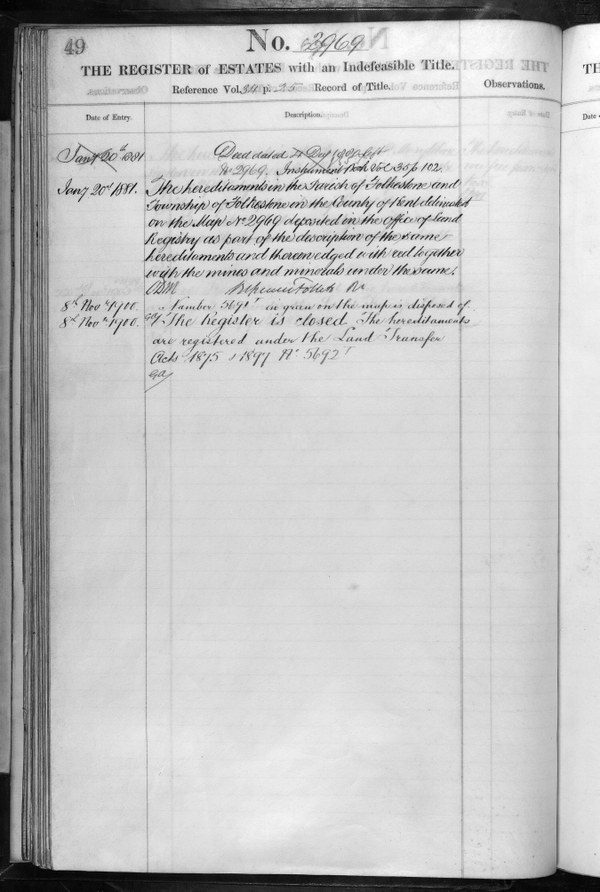 49
No. 2969
THE REGISTER of ESTATES with an Indefeasible Title.
Reference Vol. 34 p. 25 Record of Title.
Observations.
Date of Entry.
Description.
Jany 20th 1881
Deed dated
No 2969. Instrument Book Vol 35 p 102.
Jany 20th 1881.
The hereditaments in the Parish of Folkestone and
Township of Folkestone in the County of Kent delineated
on the Map No 2969 deposited in the office of Land
Registry as part of the description of the same
hereditaments and therein edged with red together
with the mines and minerals under the same.
8th Nov 1900.
Number 5691 in green on the map is disposed of.
8th Nov 1900.
The Register is closed. The hereditaments
are registered under the Land Transfer
Acts 1875 & 1897 No 5692